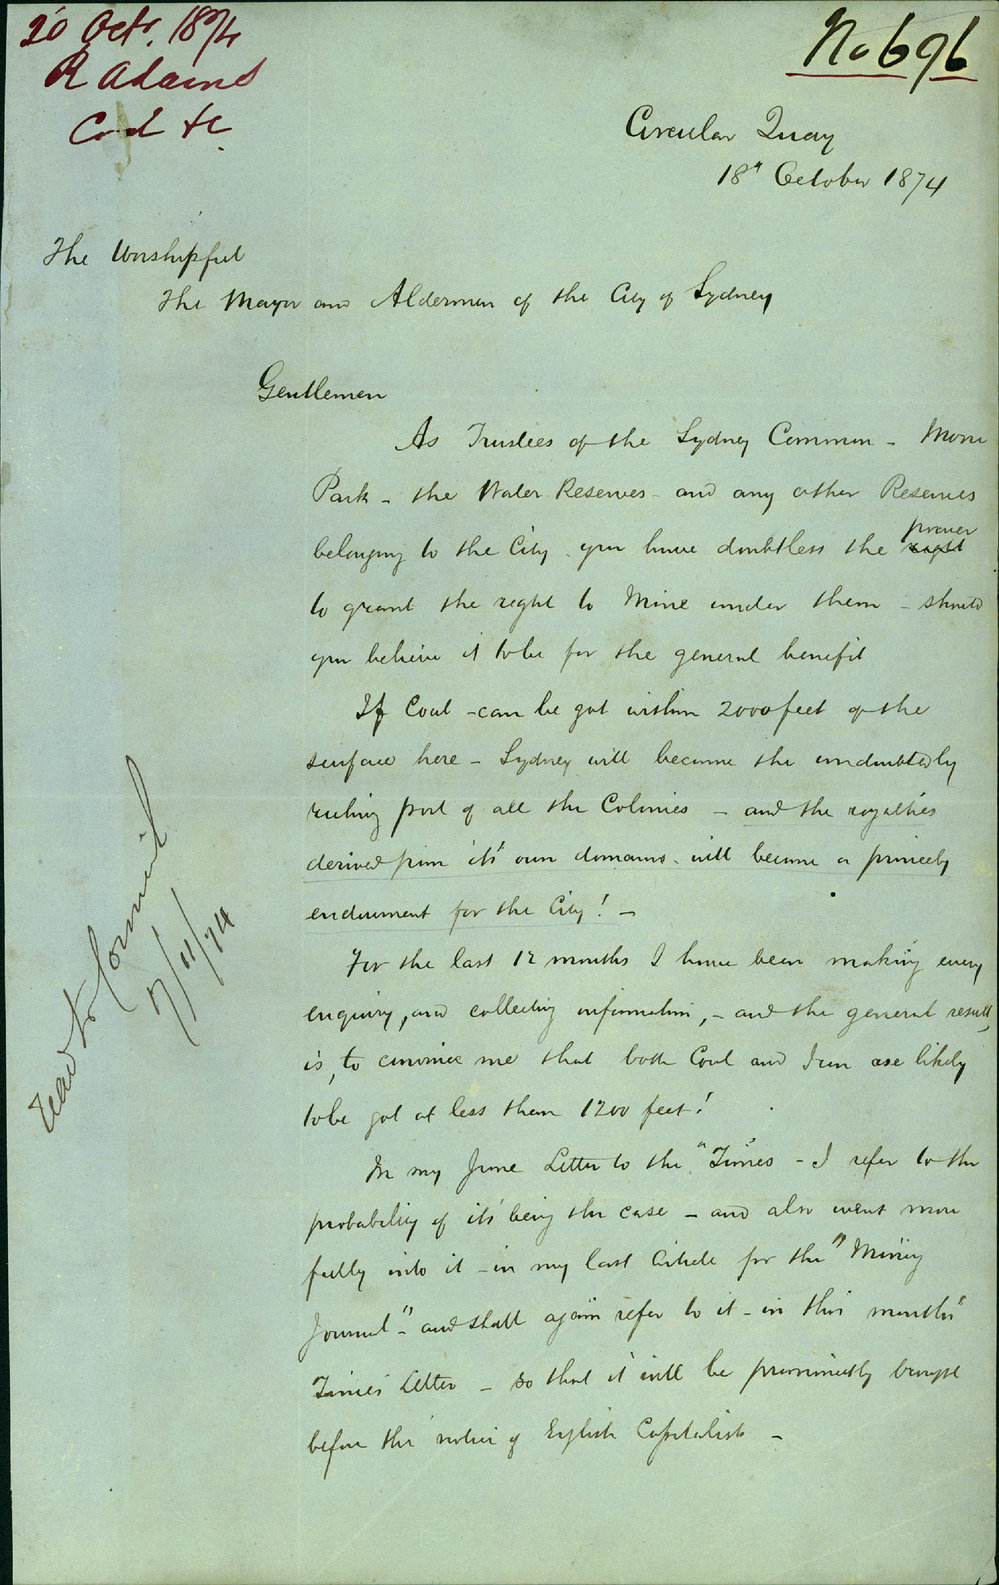 20 Octr. 1874
R Adams
Coal &c
No 696
Circular Quay
18th October 1874
The Worshipful
The Mayor and Aldermen of the City of Sydney
Gentlemen
As Trustees of the Sydney Common - Moore
Park - the Water Reserves - and any other Reserves
power
belonging to the City you have doubtless the right
to grant the right to Mine under them - should
you believe it to be for the general benefit
If Coal - can be got within 2000 feet of the
surface here - Sydney will become the undoubtedly
ruling port of all the Colonies - and the royalties
derived from it's own domains will become a princely
endowment for the City! -
For the last 12 months I have been making every
enquiry, and collecting information, - and the general result,
is, to convince me that both Coal and Iron are likely
to be got at less than 1200 feet!
In my June Letter to the "Times" - I refer to the
probability of it's being the case - and also went more
fully into it - in my last Article for the "Mining
Journal" - and shall again refer to it - in this month's
Times' Letter - so that it will be prominently brought
before the notice of English Capitalists -
Read to Council
7/11/74